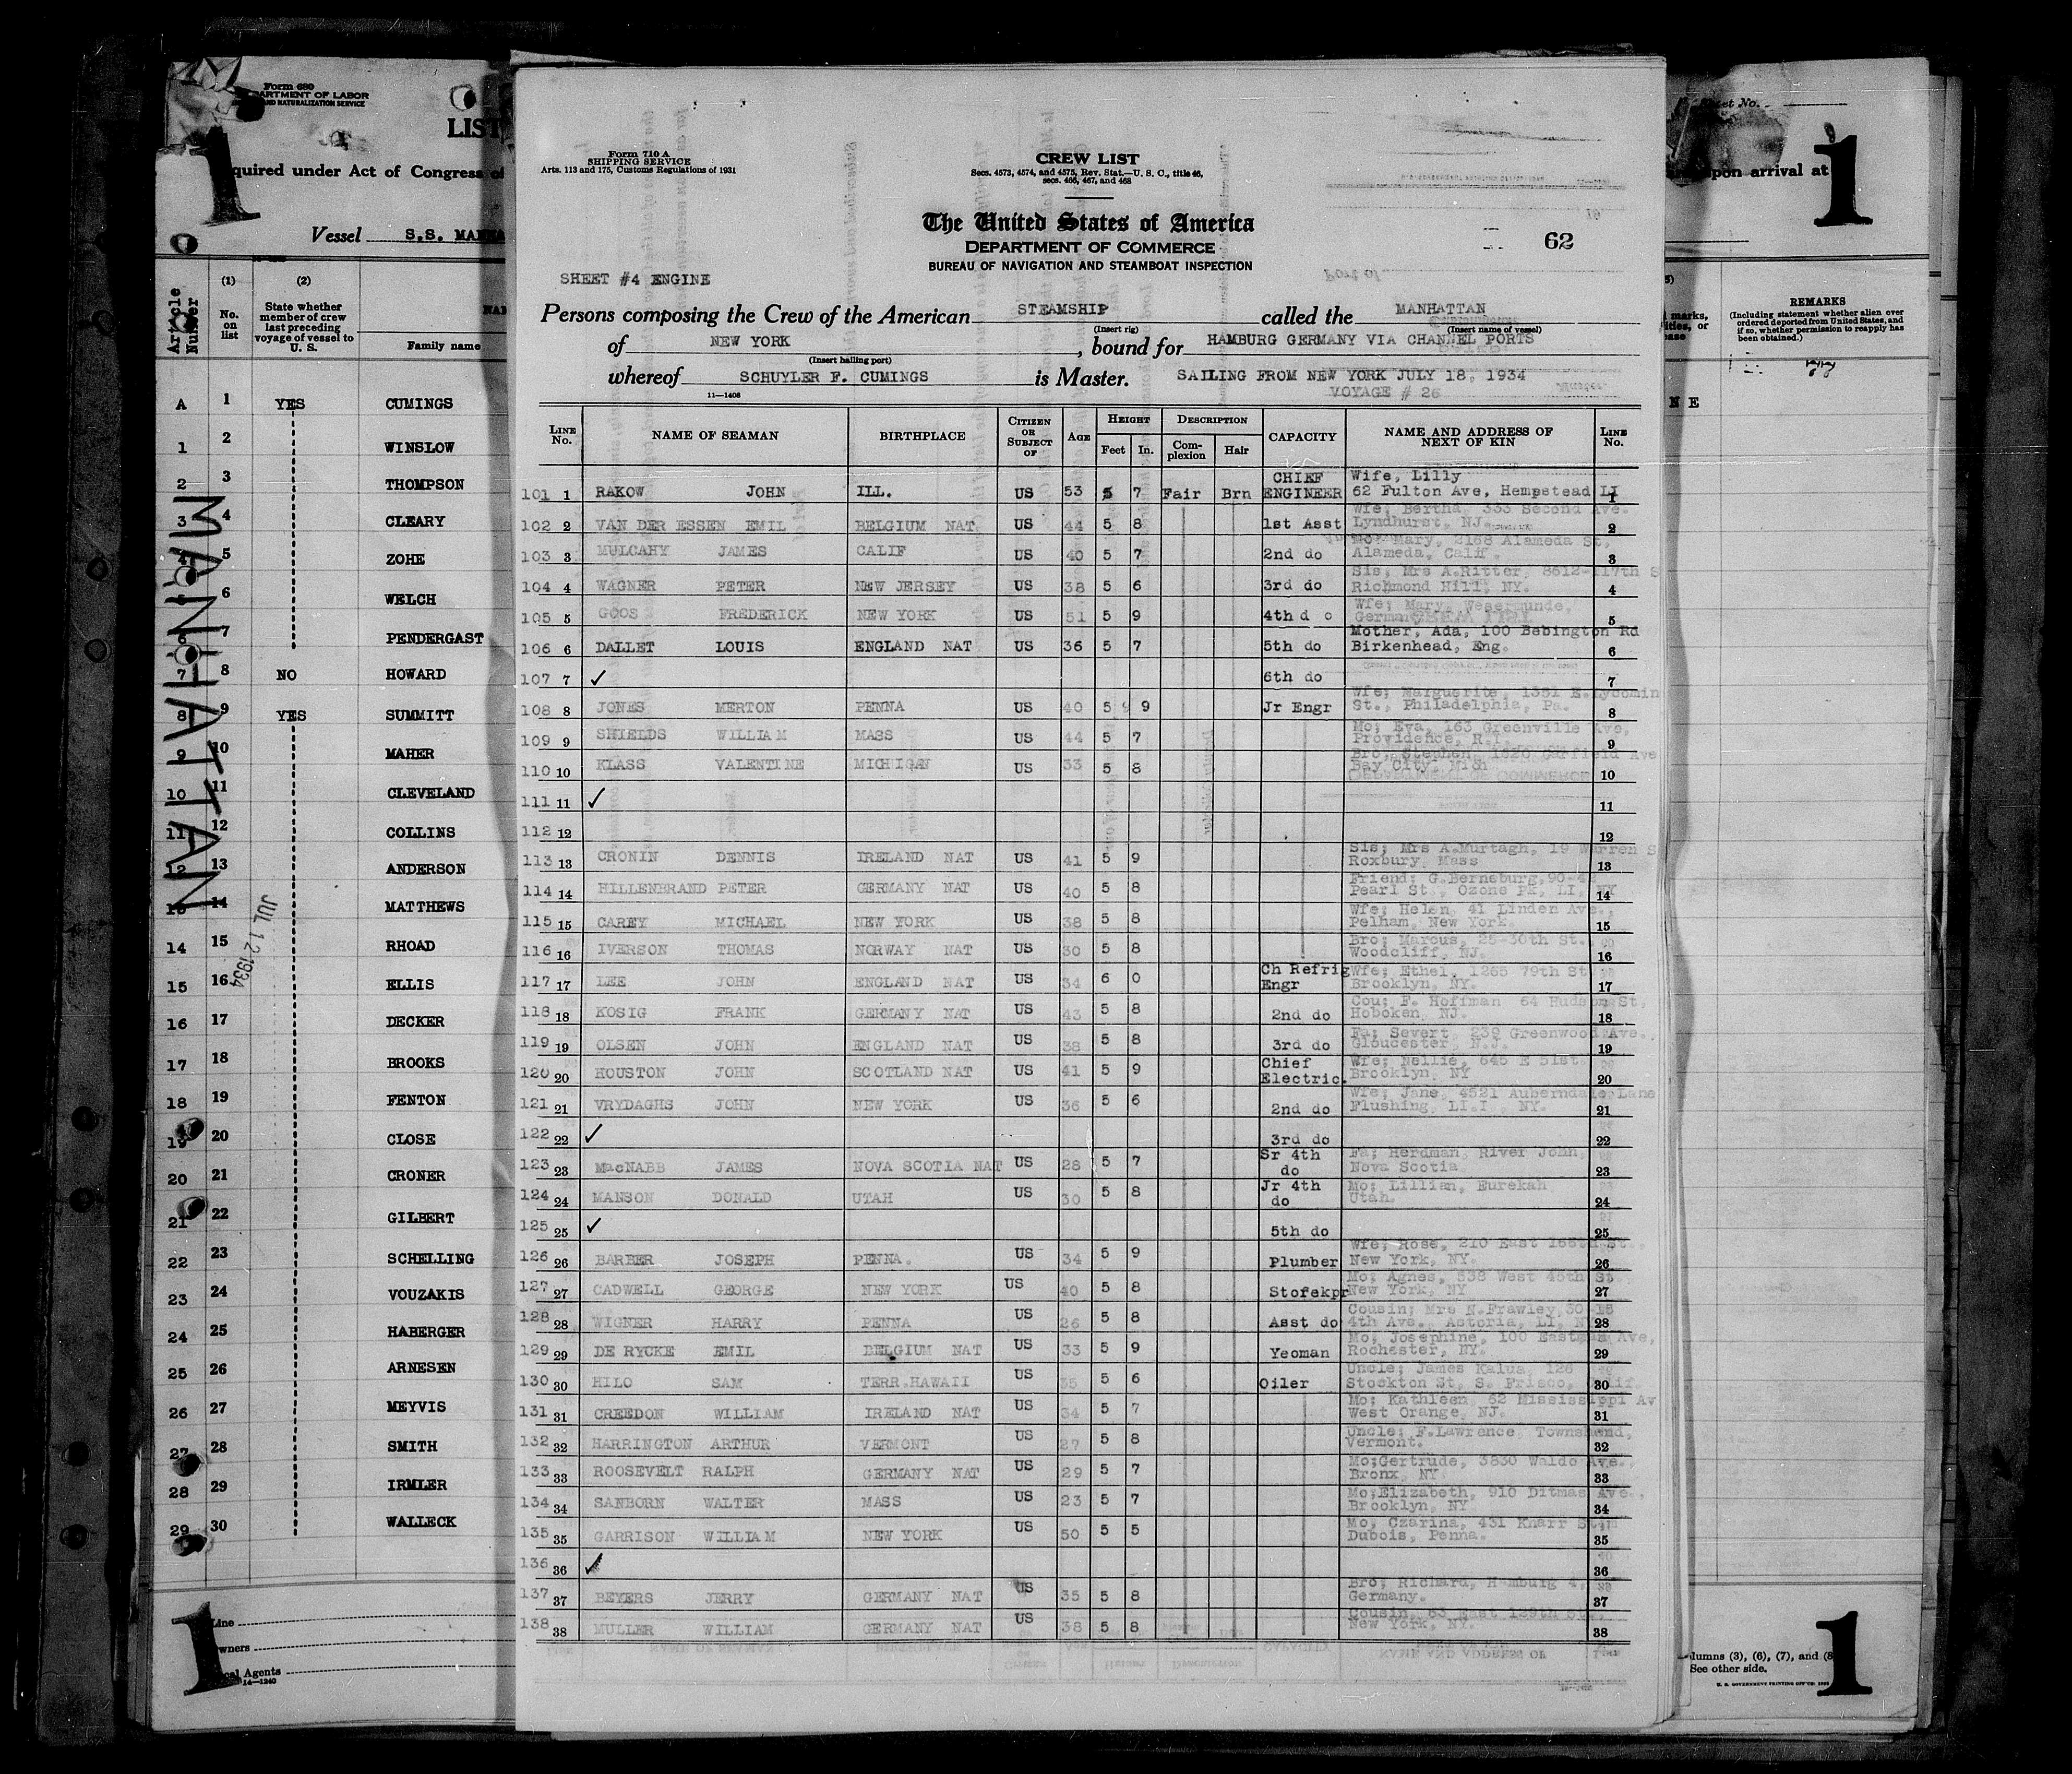 Form 680
DEPARTMENT OF LABOR
AND NATURALIZATION SERVICE
LIST
quired under Act of Congress of
Vessel S.S. MANHA
Article Number
(1) (2)
No. on list
State whether member of crew last preceding voyage of vessel to U. S.
Family name
A 1 YES CUMINGS
1 2 WINSLOW
2 3 THOMPSON
3 4 CLEARY
4 5 ZOHE
6 WELCH
6 7 PENDERGAST
7 8 NO HOWARD
8 9 YES SUMMITT
9 10 MAHER
10 11 CLEVELAND
11 12 COLLINS
12 13 ANDERSON
13 14 MATTHEWS
14 15 RHOAD
15 16 ELLIS
16 17 DECKER
17 18 BROOKS
18 19 FENTON
19 20 CLOSE
20 21 CRONER
21 22 GILBERT
22 23 SCHELLING
23 24 VOUZAKIS
24 25 HABERGER
25 26 ARNESEN
26 27 MEYVIS
27 28 SMITH
28 29 IRMLER
29 30 WALLECK
MANHATTAN
JUL 12 1934
Line
wners
cal Agents
14—1240
1
1
Form 710 A
SHIPPING SERVICE
Arts. 113 and 175, Customs Regulations of 1931
CREW LIST
Secs. 4573, 4574, and 4575, Rev. Stat.—U. S. C., title 46,
secs. 466, 467, and 468
The United States of America
DEPARTMENT OF COMMERCE
BUREAU OF NAVIGATION AND STEAMBOAT INSPECTION
62
SHEET #4 ENGINE
Persons composing the Crew of the American STEAMSHIP called the MANHATTAN
(Insert rig) (Insert name of vessel)
of NEW YORK, bound for HAMBURG GERMANY VIA CHANNEL PORTS
(Insert hailing port)
whereof SCHUYLER F. CUMINGS is Master. SAILING FROM NEW YORK JULY 18, 1934
11—1408 VOYAGE # 26
LINE No. NAME OF SEAMAN BIRTHPLACE CITIZEN OR SUBJECT OF AGE HEIGHT Feet In. DESCRIPTION Complexion Hair CAPACITY NAME AND ADDRESS OF NEXT OF KIN LINE No.
101 1 RAKOW JOHN ILL. US 53 5 7 Fair Brn CHIEF ENGINEER Wife, Lilly 62 Fulton Ave, Hempstead LI 1
102 2 VAN DER ESSEN EMIL BELGIUM NAT US 44 5 8 1st Asst Wfe; Bertha, 333 Second Ave. Lyndhurst, NJ. 2
103 3 MULCAHY JAMES CALIF US 40 5 7 2nd do Mo; Mary, 2168 Alameda St, Alameda, Calif. 3
104 4 WAGNER PETER NEW JERSEY US 38 5 6 3rd do Sis; Mrs A.Ritter, 8612-117th S Richmond Hill, NY. 4
105 5 GOOS FREDERICK NEW YORK US 51 5 9 4th d o Wfe; Mary, Wesermunde, Germany 5
106 6 DALLET LOUIS ENGLAND NAT US 36 5 7 5th do Mother, Ada, 100 Bebington Rd Birkenhead, Eng. 6
107 7 ✓ 6th do 7
108 8 JONES MERTON PENNA US 40 5 9 9 Jr Engr Wfe; Marguerite, 1351 E.Lycomin St., Philadelphia, Pa. 8
109 9 SHIELDS WILLIAM MASS US 44 5 7 Mo; Eva, 163 Greenville Ave, Providence, R.I. 9
110 10 KLASS VALENTINE MICHIGAN US 33 5 8 Bro; Stephen, 1820 Garfield Ave Bay City, Mich 10
111 11 ✓ 11
112 12 12
113 13 CRONIN DENNIS IRELAND NAT US 41 5 9 Sis; Mrs A.Murtagh, 19 Warren S Roxbury, Mass 13
114 14 HILLENBRAND PETER GERMANY NAT US 40 5 8 Friend: G.Berneburg, 90-4 Pearl St., Ozone Pk, LI, NY 14
115 15 CAREY MICHAEL NEW YORK US 38 5 8 Wfe; Helen, 41 Linden Ave., Pelham, New York. 15
116 16 IVERSON THOMAS NORWAY NAT US 30 5 8 Bro; Marcus, 25-30th St. Woodcliff, NJ. 16
117 17 LEE JOHN ENGLAND NAT US 34 6 0 Ch Refrig Engr Wfe; Ethel, 1265 79th St Brooklyn, NY. 17
118 18 KOSIG FRANK GERMANY NAT US 43 5 8 2nd do Cou; F. Hoffman 64 Hudson St, Hoboken, NJ. 18
119 19 OLSEN JOHN ENGLAND NAT US 38 5 8 3rd do Fa; Severt, 239 Greenwood Ave., Gloucester, N.J. 19
120 20 HOUSTON JOHN SCOTLAND NAT US 41 5 9 Chief Electric. Wfe; Nellie, 645 E 51st Brooklyn, NY 20
121 21 VRYDAGHS JOHN NEW YORK US 36 5 6 2nd do Wfe; Jane, 4521 Auberndale Lane Flushing, LI.I , NY. 21
122 22 ✓ 3rd do 22
123 23 MacNABB JAMES NOVA SCOTIA NAT US 28 5 7 Sr 4th do Fa; Herdman, River John, Nova Scotia 23
124 24 MANSON DONALD UTAH US 30 5 8 Jr 4th do Mo; Lillian, Eurekah Utah. 24
125 25 ✓ 5th do 25
126 26 BARBER JOSEPH PENNA. US 34 5 9 Plumber Wfe; Rose, 210 East 166th St., New York, NY. 26
127 27 CADWELL GEORGE NEW YORK US 40 5 8 Stofekpr Mo; Agnes, 538 West 46th St. New York, NY 27
128 28 WIGNER HARRY PENNA US 26 5 8 Asst do Cousin; Mrs N.Frawley, 30-15 4th Ave., Astoria, LI, N 28
129 29 DE RYCKE EMIL BELGIUM NAT US 33 5 9 Yeoman Mo; Josephine, 100 Eastman Ave, Rochester, NY. 29
130 30 HILO SAM TERR.HAWAII US 35 5 6 Oiler Uncle; James Kalua, 126 Stockton St, S. Frisco, Calif. 30
131 31 CREEDON WILLIAM IRELAND NAT US 34 5 7 Mo; Kathleen, 62 Mississippi Av West Orange, NJ. 31
132 32 HARRINGTON ARTHUR VERMONT US 27 5 8 Uncle; F.Lawrence, Townshend, Vermont. 32
133 33 ROOSEVELT RALPH GERMANY NAT US 29 5 7 Mo;Gertrude, 3830 Waldo Ave., Bronx, NY 33
134 34 SANBORN WALTER MASS US 23 5 7 Mo;Elizabeth, 910 Ditmas Ave., Brooklyn, NY 34
135 35 GARRISON WILLIAM NEW YORK US 50 5 5 Mo, Czarina, 431 Knarr St, Dubois, Penna. 35
136 36 ✓ 36
137 37 BEYERS JERRY GERMANY NAT US 35 5 8 Bro; Richard, Hamburg 4, Germany. 37
138 38 MULLER WILLIAM GERMANY NAT US 38 5 8 Cousin, 63 East 129th St., New York, NY. 38
Sheet No.
1
upon arrival at
REMARKS
(Including statement whether alien ever ordered deported from United States, and if so, whether permission to reapply has been obtained.)
marks,
ities, or
ease
N E
lumns (3), (6), (7), and (8
See other side.
U. S. GOVERNMENT PRINTING OFFICE
1